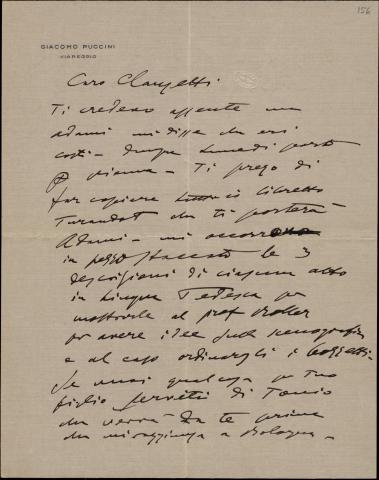 156
GIACOMO PUCCINI
VIAREGGIO
Caro Clausetti
Ti credevo assente ma
Adami mi disse che eri
costì – dunque lunedì parto
p Vienna – Ti prego di
far copiare tutto il libretto
Turandot che ti porterà
Adami – mi occorrono
in pezzo staccato le 3
descrizioni di ciascun atto
in lingua Tedesca per
mostrarle al prof Roller
per avere idee sulla scenografia
e al caso ordinargli i bozzetti –
Se vuoi qualcosa per tuo
figlio serviti di Tonio
che verrà da te prima
che mi raggiunga a Bologna –